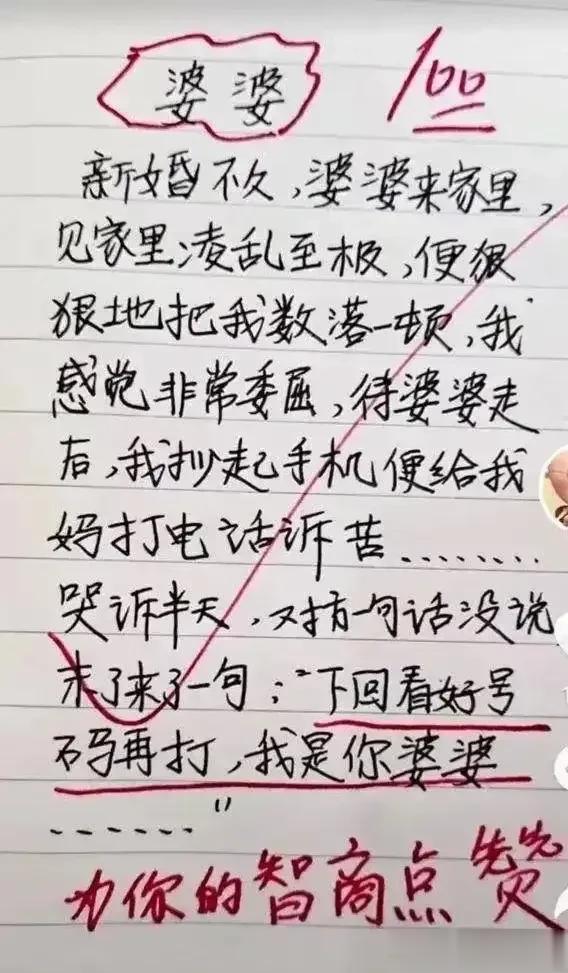 婆婆
100
新婚不久，婆婆来家里，
见家里凌乱至极，便狠
狠地把我数落一顿，我
感觉非常委屈，待婆婆走
后，我抄起手机便给我
妈打电话诉苦........
哭诉半天，对方一句话没说
末了来了一句："下回看好号
码再打，我是你婆婆
......"
为你的智商点赞